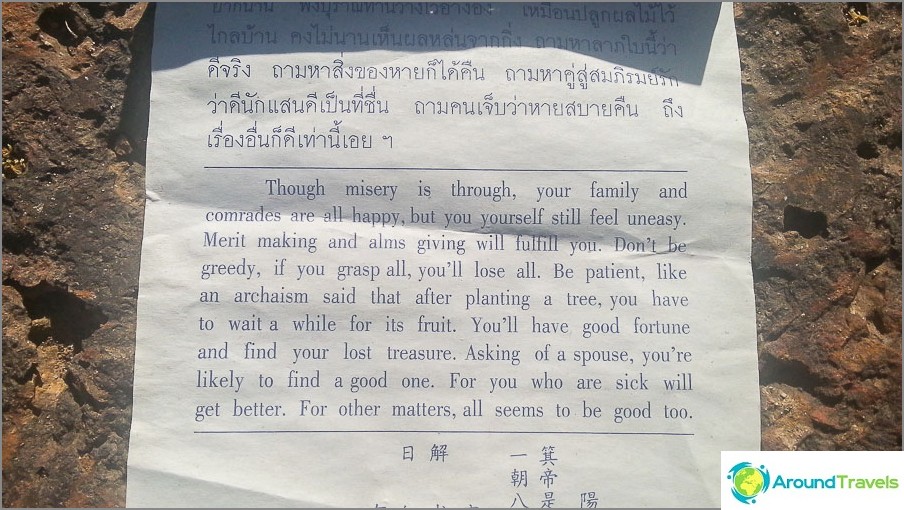 อยากนาน ฟังบุราณท่านวางไว้อ้างอิง เหมือนปลูกผลไม้ไว้
ไกลบ้าน คงไม่นานเห็นผลหล่นจากกิ่ง ถามหาลาภใบนี้ว่า
ดีจริง ถามหาสิ่งของหายก็ได้คืน ถามหาคู่สู่สมภิรมย์รัก
ว่าดีนักแสนดีเป็นที่ชื่น ถามคนเจ็บว่าหายสบายคืน ถึง
เรื่องอื่นก็ดีเท่านี้เอย ฯ
Though misery is through, your family and
comrades are all happy, but you yourself still feel uneasy.
Merit making and alms giving will fulfill you. Don't be
greedy, if you grasp all, you'll lose all. Be patient, like
an archaism said that after planting a tree, you have
to wait a while for its fruit. You'll have good fortune
and find your lost treasure. Asking of a spouse, you're
likely to find a good one. For you who are sick will
get better. For other matters, all seems to be good too.
日解 一箕
朝帝
八是 陽
AroundTravels